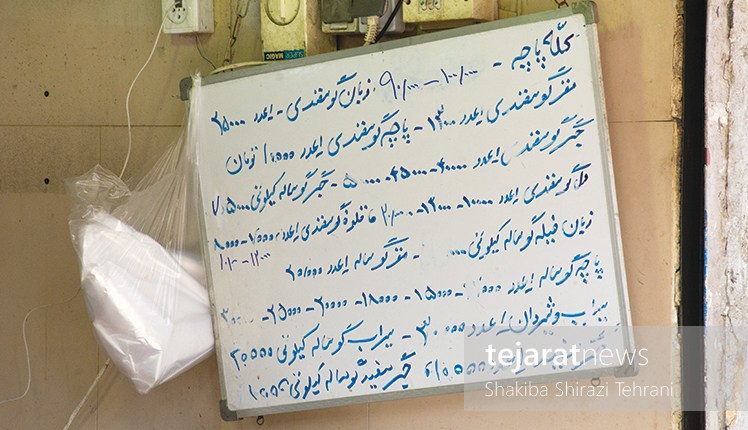 SUPER
MAGIC
کله پاچه - ۱۰۰/۰۰۰ - ۹۰/۰۰۰ زبان گوسفندی - ۱عدد ۲۵۰۰۰
مغز گوسفندی ۱عدد ۱۳۰۰۰ - پاچه گوسفندی ۱عدد تومان
جگر گوسفندی ۱عدد ۴۰۰۰۰ - ۴۵۰۰۰ - جگر گوساله کیلوئی ۷۵۰۰۰
دل گوسفندی ۱عدد ۱۰۰۰۰ - ۱۲۰۰۰ قلوه گوسفندی ۱عدد ۷۰۰۰ - ۸۰۰۰
۱۲۰۰۰
زبان فیله گوساله کیلوئی - مغز گوساله ۱عدد ۲۰/۰۰۰
پاچه گوساله ۱عدد ۱۵۰۰۰ - ۱۸۰۰۰ - ۲۰۰۰۰ - ۲۵۰۰۰ - ۳۰۰۰۰
سیراب وشیردان ۱عدد ۳۰/۰۰۰ - سیراب گوساله کیلوئی ۲۰/۰۰۰
جگر سفید گوساله کیلوئی
tejaratnews
Shakiba Shirazi Tehrani